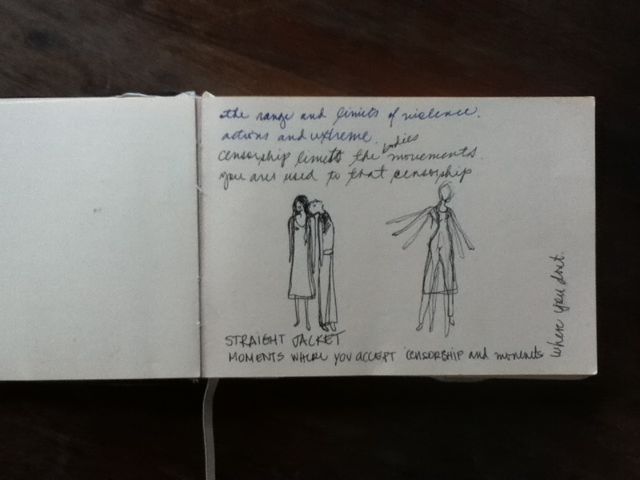 the range and limits of violence.
actions and extreme.
censorship limits the bodies movements.
you are used to that censorship
STRAIGHT JACKET
MOMENTS WHERE YOU ACCEPT CENSORSHIP and moments
where you dont.